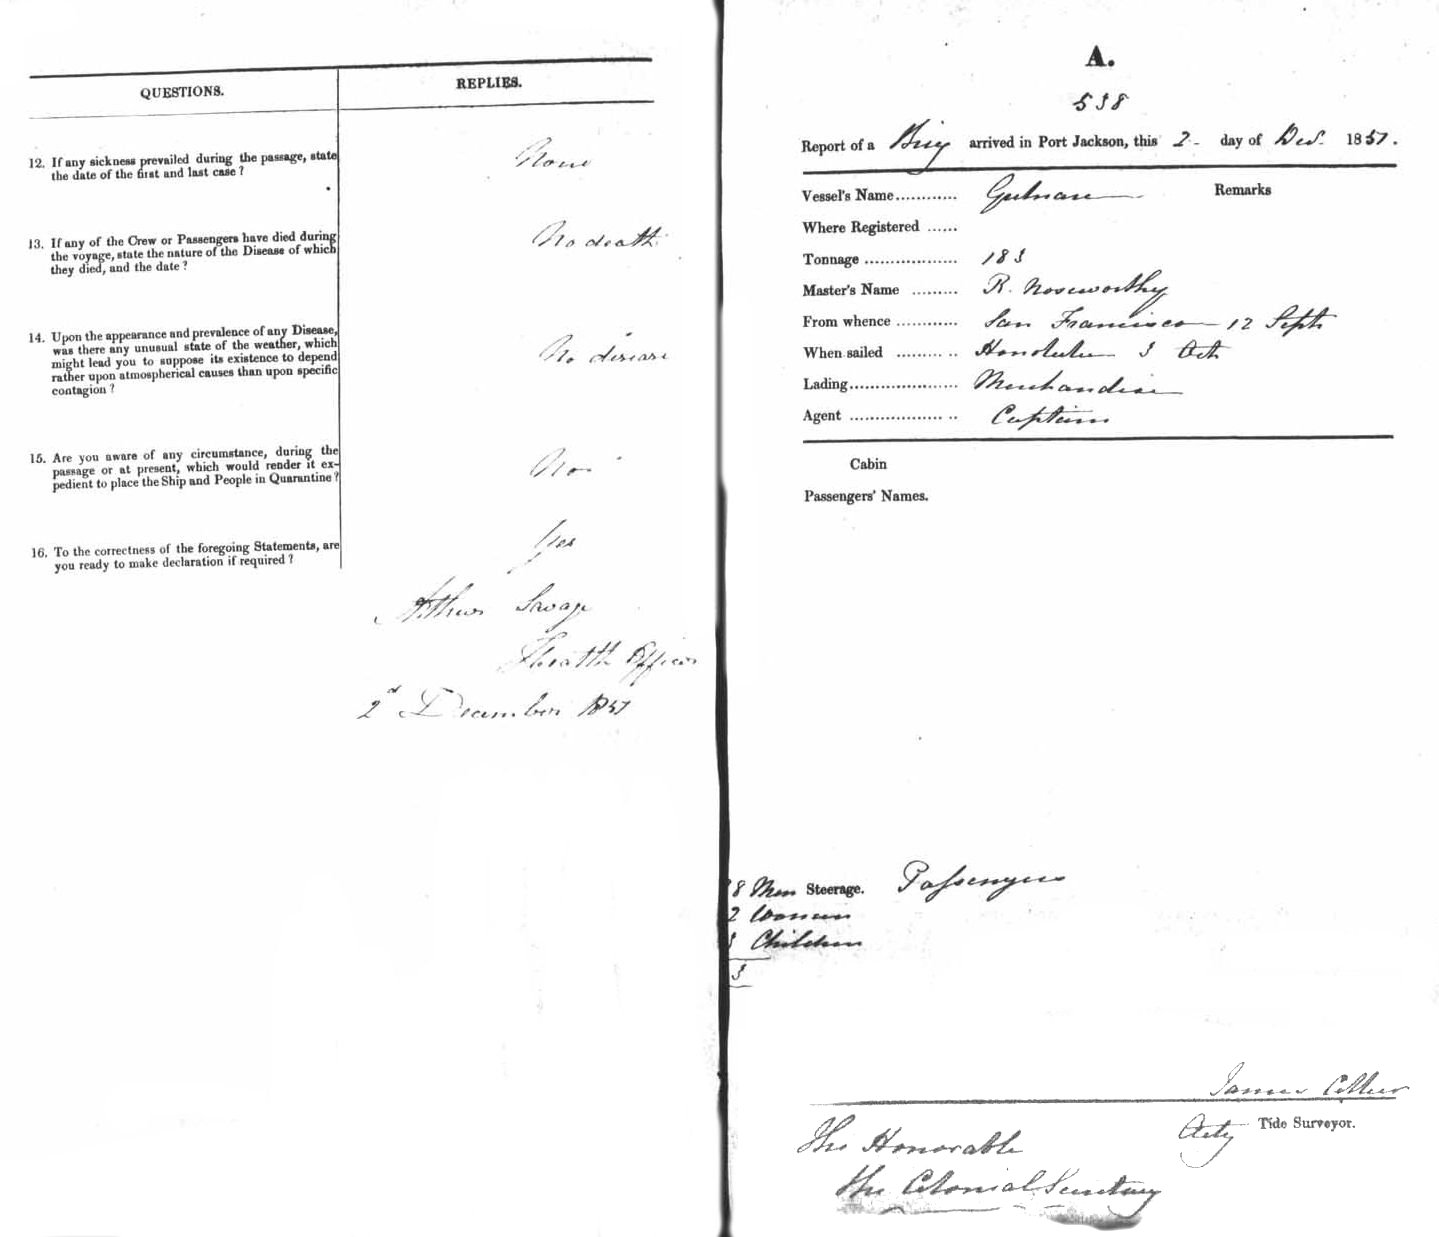 QUESTIONS.
REPLIES.
12. If any sickness prevailed during the passage, state
the date of the first and last case?
None
13. If any of the Crew or Passengers have died during
the voyage, state the nature of the Disease of which
they died, and the date?
No death
14. Upon the appearance and prevalence of any Disease,
was there any unusual state of the weather, which
might lead you to suppose its existence to depend
rather upon atmospherical causes than upon specific
contagion?
No disease
15. Are you aware of any circumstance, during the
passage or at present, which would render it ex-
pedient to place the Ship and People in Quarantine?
No
16. To the correctness of the foregoing Statements, are
you ready to make declaration if required?
Yes
Arthur Savage
Health Officer
2d December 1851
A.
538
Report of a Brig arrived in Port Jackson, this 2 day of Dec. 1851.
Vessel's Name............ Gulnare
Remarks
Where Registered ......
Tonnage .................. 183
Master's Name ......... R. Noseworthy
From whence ............ San Francisco 12 Sept
When sailed ......... .. Honolulu 3 Oct
Lading..................... Merchandise
Agent .................. .. Captain
Cabin
Passengers' Names.
8 Men Steerage. Passengers
2 Women
3 Children
3
James
Actg Tide Surveyor.
The Honorable
the Colonial Secretary